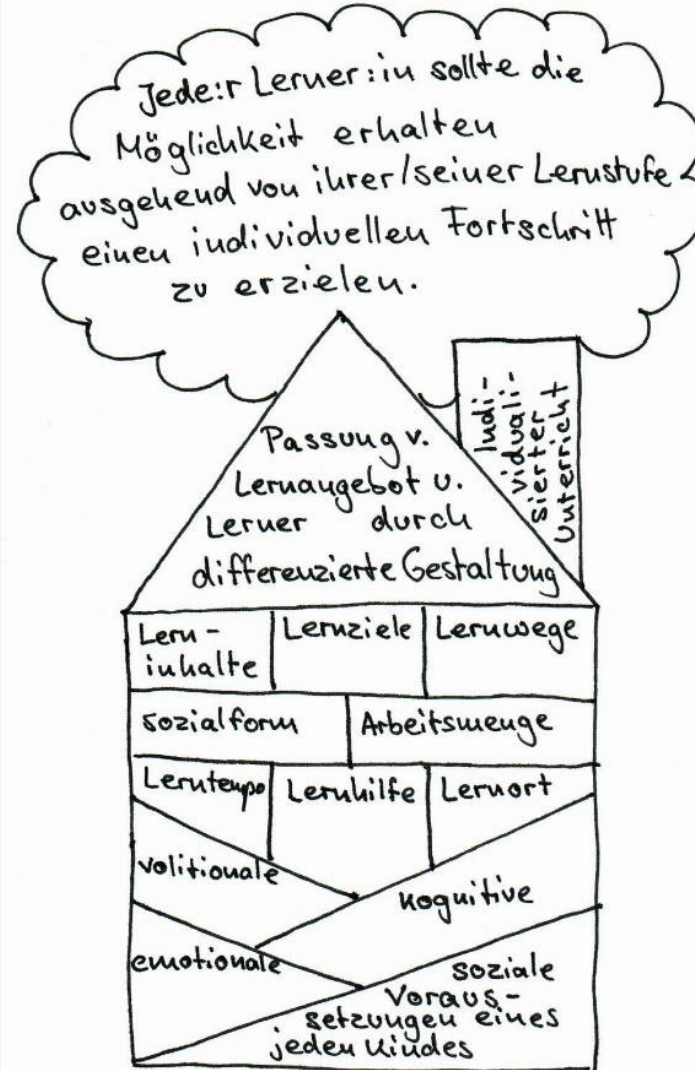 Jede:r Lerner:in sollte die
Möglichkeit erhalten
ausgehend von ihrer/seiner Lernstufe
einen individuellen Fortschritt
zu erzielen.
Indi-
viduali-
sierter
Unterricht
Passung v.
Lernangebot u.
Lerner durch
differenzierte Gestaltung
Lern-
inhalte
Lernziele
Lernwege
Sozialform
Arbeitsmenge
Lerntempo
Lernhilfe
Lernort
volitionale
kognitive
emotionale
soziale
Voraus-
setzungen eines
jeden Kindes